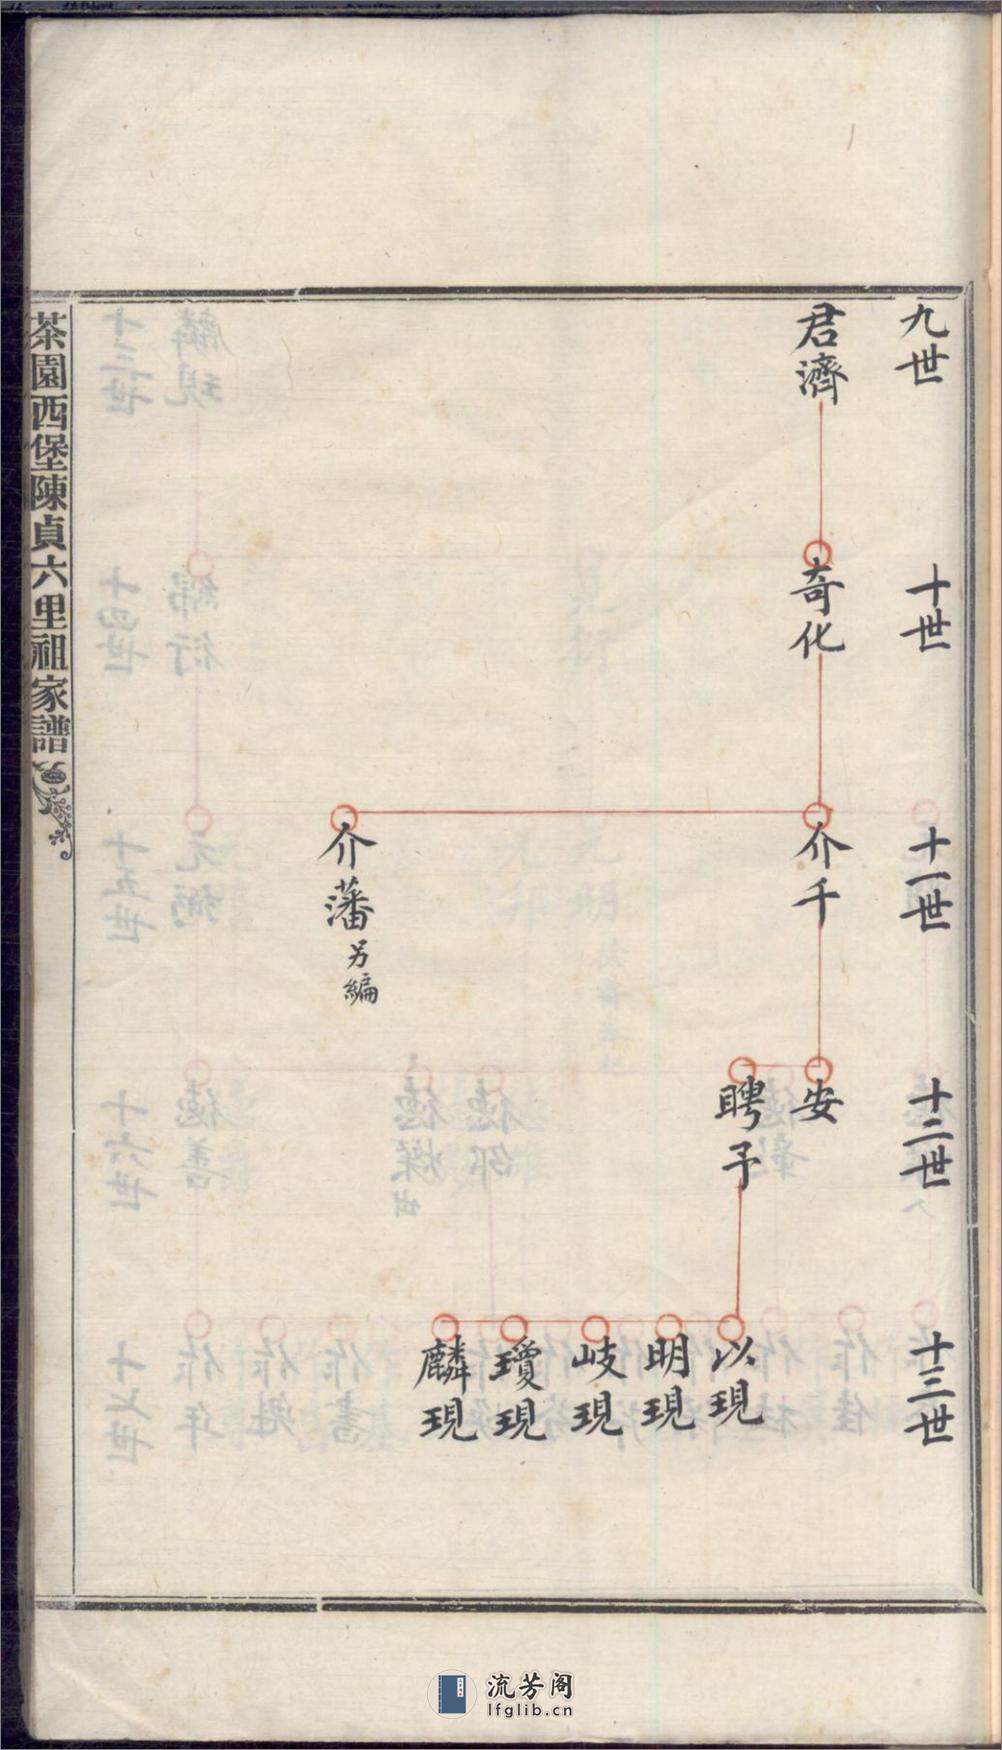 九世
君濟
十世
奇化
十一世
介千
介藩另編
十二世
安
聘予
十三世
以現
明現
岐現
瓊現
麟現
茶園西堡陳貞六里祖家譜
流芳阁
lfglib.cn